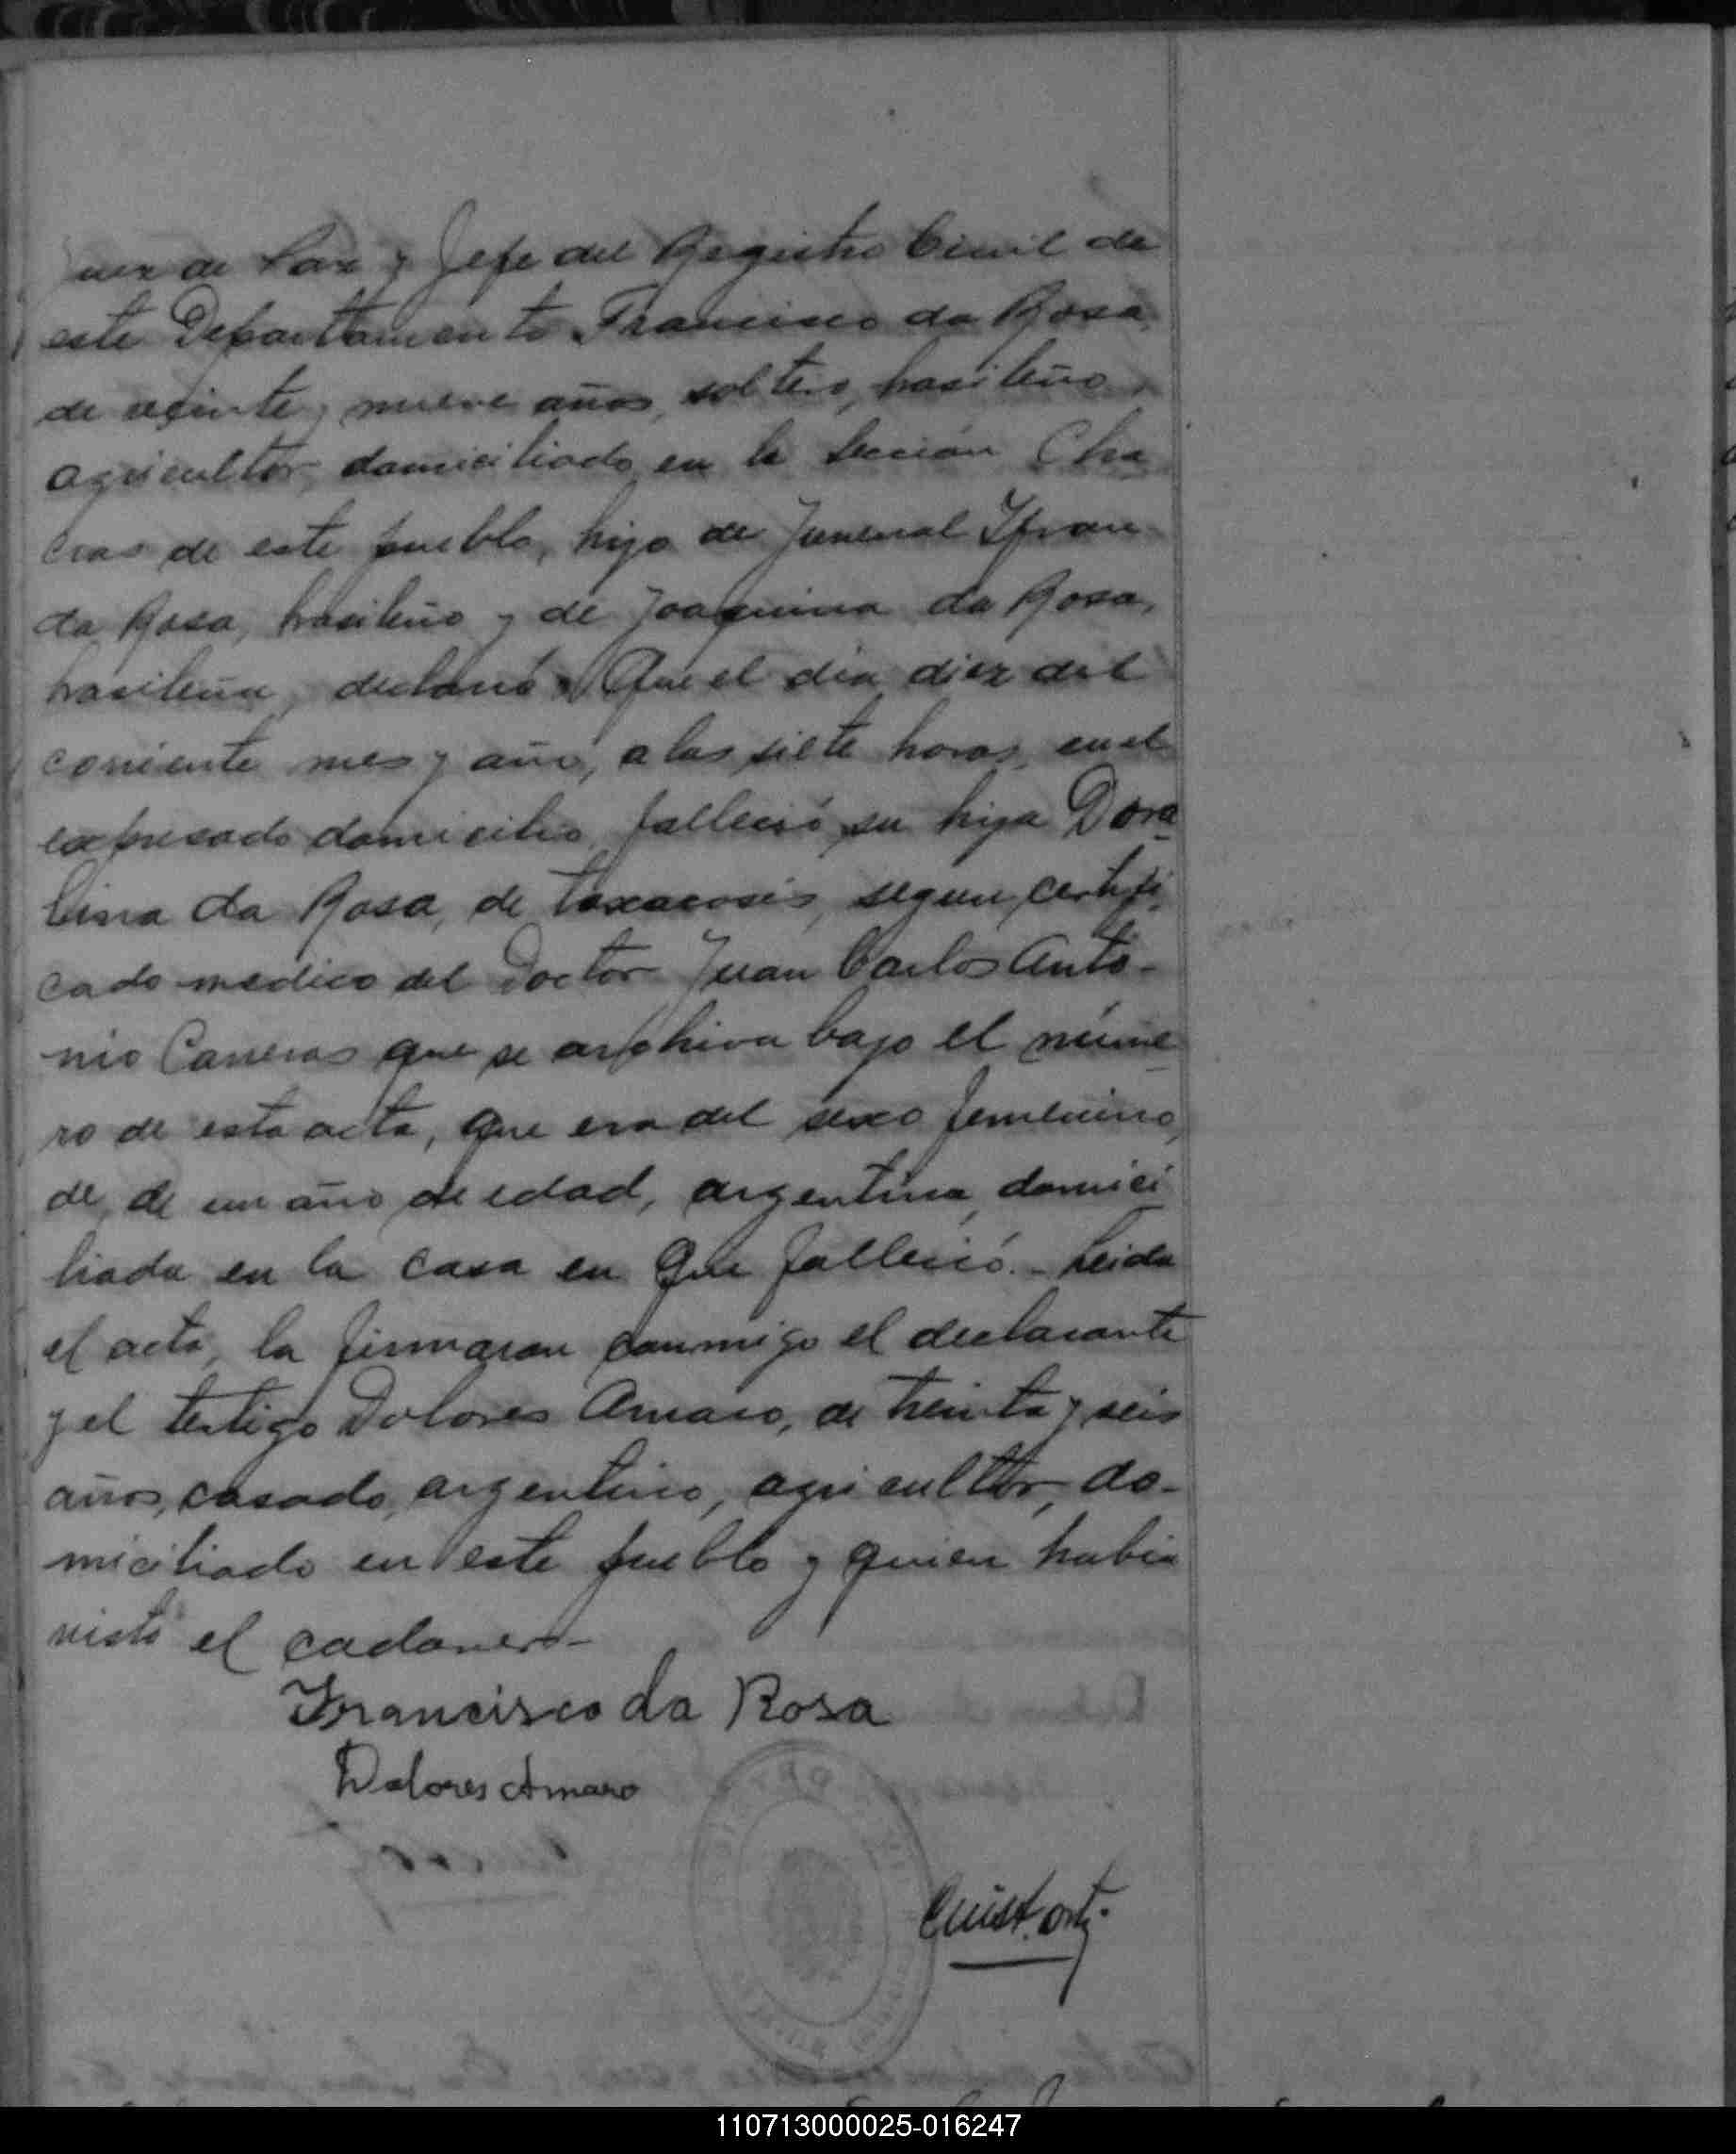 Juez de Paz y Jefe del Registro Civil de
este Departamento Francisco da Rosa,
de veinte y nueve años, soltero, brasileño,
agricultor, domiciliado en la Sección Cha
cras de este pueblo, hijo de Juvenal
da Rosa, brasileño y de Joaquina da Rosa,
brasileña, declaró: Que el día diez del
corriente mes y año, a las siete horas, en el
expresado domicilio, falleció su hija Dora
lina da Rosa, de toxicosis, segun certifi
cado medico del Doctor Juan Carlos Anto-
nio Carreras que se archiva bajo el núme
ro de esta acta, que era del sexo femenino,
de, de un año de edad, argentina, domici
liada en la casa en que falleció.- Leida
el acta, la firmaron conmigo el declarante
y el testigo Dolores Amaro, de treinta y seis
años, casado, argentino, agricultor, do-
miciliado en este pueblo y quien habia
visto el cadaver.-
Francisco da Rosa
Dolores Amaro
110713000025-016247